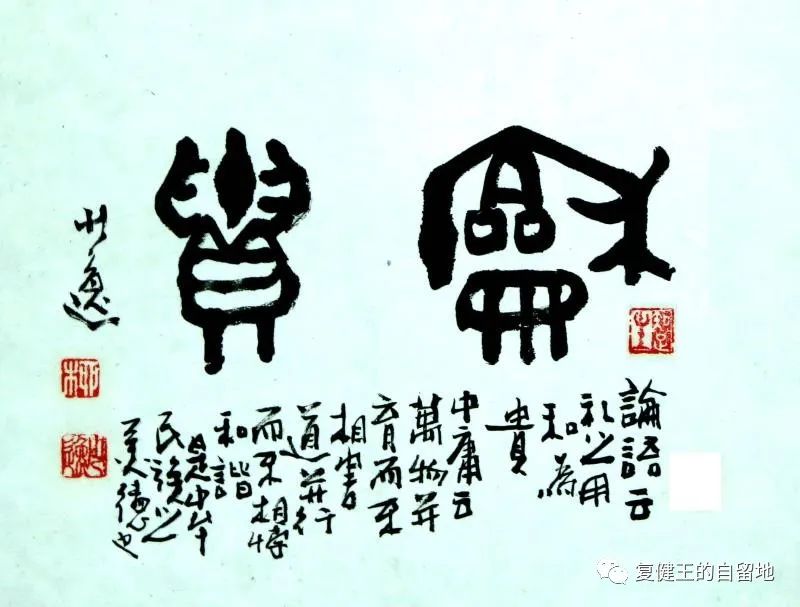 龢貴
論語云
礼之用
和為
貴
中庸云
萬物并
育而不
相害
道并行
而不相悖
和諧
是中華
民族之
美德也
复健王的自留地